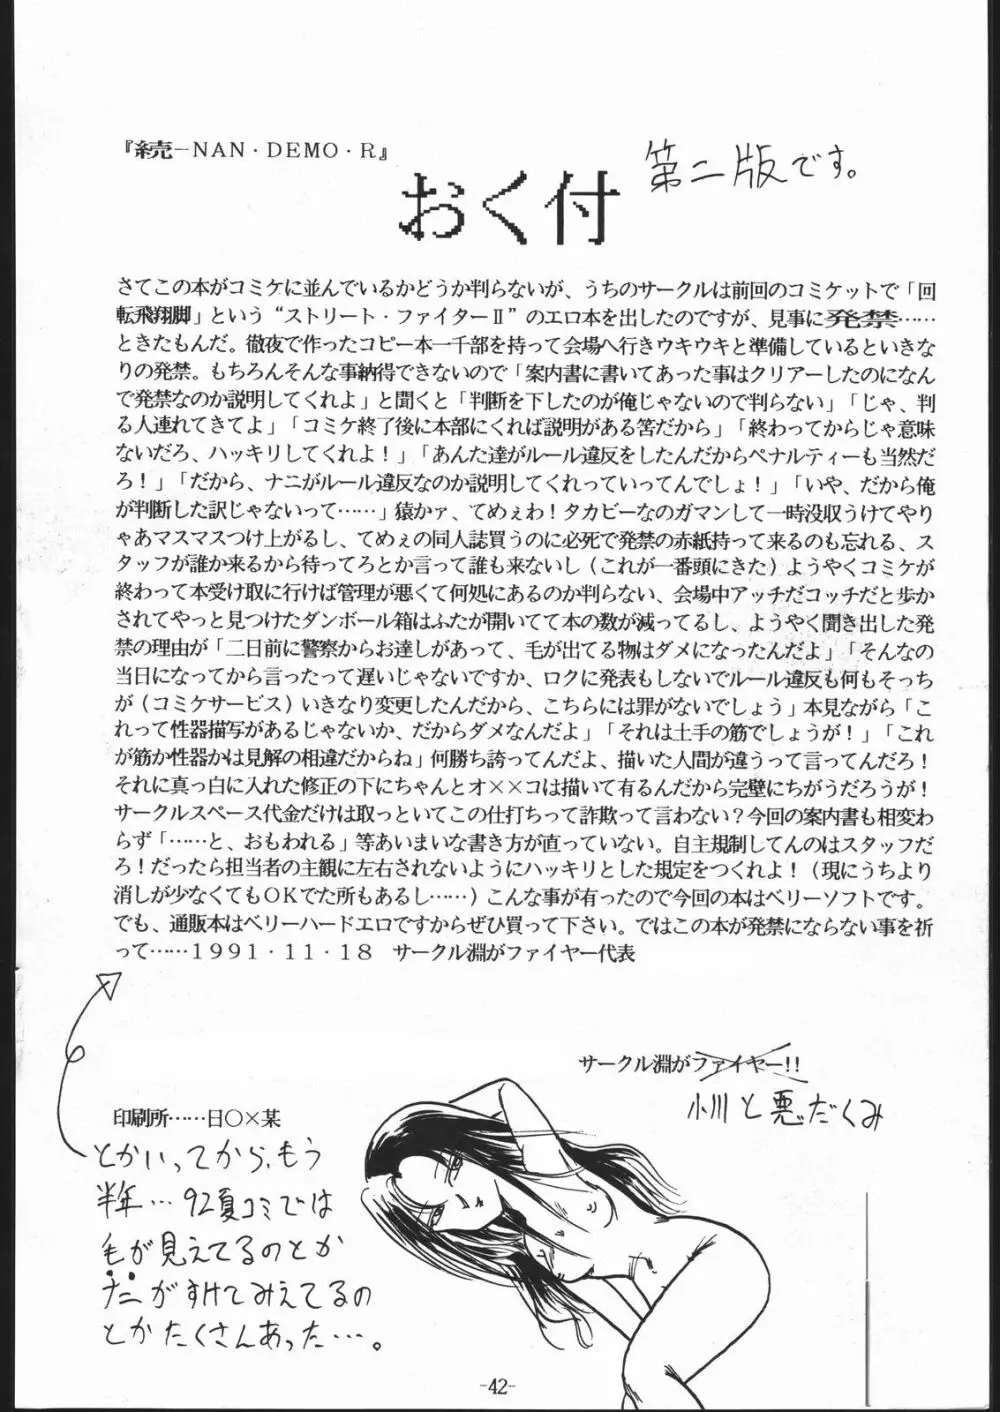 『続－NAN・DEMO・R』
第二版です。
おく付
さてこの本がコミケに並んでいるかどうか判らないが、うちのサークルは前回のコミケットで「回
転飛翔脚」という“ストリート・ファイターⅡ”のエロ本を出したのですが、見事に発禁……
ときたもんだ。徹夜で作ったコピー本一千部を持って会場へ行きウキウキと準備しているといきな
りの発禁。もちろんそんな事納得できないので「案内書に書いてあった事はクリアーしたのになん
で発禁なのか説明してくれよ」と聞くと「判断を下したのが俺じゃないので判らない」「じゃ、判
る人連れてきてよ」「コミケ終了後に本部にくれば説明がある筈だから」「終わってからじゃ意味
ないだろ、ハッキリしてくれよ！」「あんた達がルール違反をしたんだからペナルティーも当然だ
ろ！」「だから、ナニがルール違反なのか説明してくれっていってんでしょ！」「いや、だから俺
が判断した訳じゃないって……」猿かァ、てめぇわ！タカビーなのガマンして一時没収うけてやり
ゃあマスマスつけ上がるし、てめぇの同人誌買うのに必死で発禁の赤紙持って来るのも忘れる、ス
タッフが誰か来るから待ってろとか言って誰も来ないし（これが一番頭にきた）ようやくコミケが
終わって本受け取に行けば管理が悪くて何処にあるのか判らない、会場中アッチだコッチだと歩か
されてやっと見つけたダンボール箱はふたが開いてて本の数が減ってるし、ようやく聞き出した発
禁の理由が「二日前に警察からお達しがあって、毛が出てる物はダメになったんだよ」「そんなの
当日になってから言ったって遅いじゃないですか、ロクに発表もしないでルール違反も何もそっち
が（コミケサービス）いきなり変更したんだから、こちらには罪がないでしょう」本見ながら「こ
れって性器描写があるじゃないか、だからダメなんだよ」「それは土手の筋でしょうが！」「これ
が筋か性器かは見解の相違だからね」何勝ち誇ってんだよ、描いた人間が違うって言ってんだろ！
それに真っ白に入れた修正の下にちゃんとオ××コは描いて有るんだから完璧にちがうだろうが！
サークルスペース代金だけは取っといてこの仕打ちって詐欺って言わない？今回の案内書も相変わ
らず「……と、おもわれる」等あいまいな書き方が直っていない。自主規制してんのはスタッフだ
ろ！だったら担当者の主観に左右されないようにハッキリとした規定をつくれよ！（現にうちより
消しが少なくてもOKでた所もあるし……）こんな事が有ったので今回の本はベリーソフトです。
でも、通販本はベリーハードエロですからぜひ買って下さい。ではこの本が発禁にならない事を祈
って……1991・11・18　サークル淵がファイヤー代表
サークル淵がファイヤー！！
小川と悪だくみ
印刷所……日○×某
とかいってから、もう
半年…92夏コミでは
毛が見えてるのとか
ナニがすけてみえてるの
とかたくさんあった…。
-42-